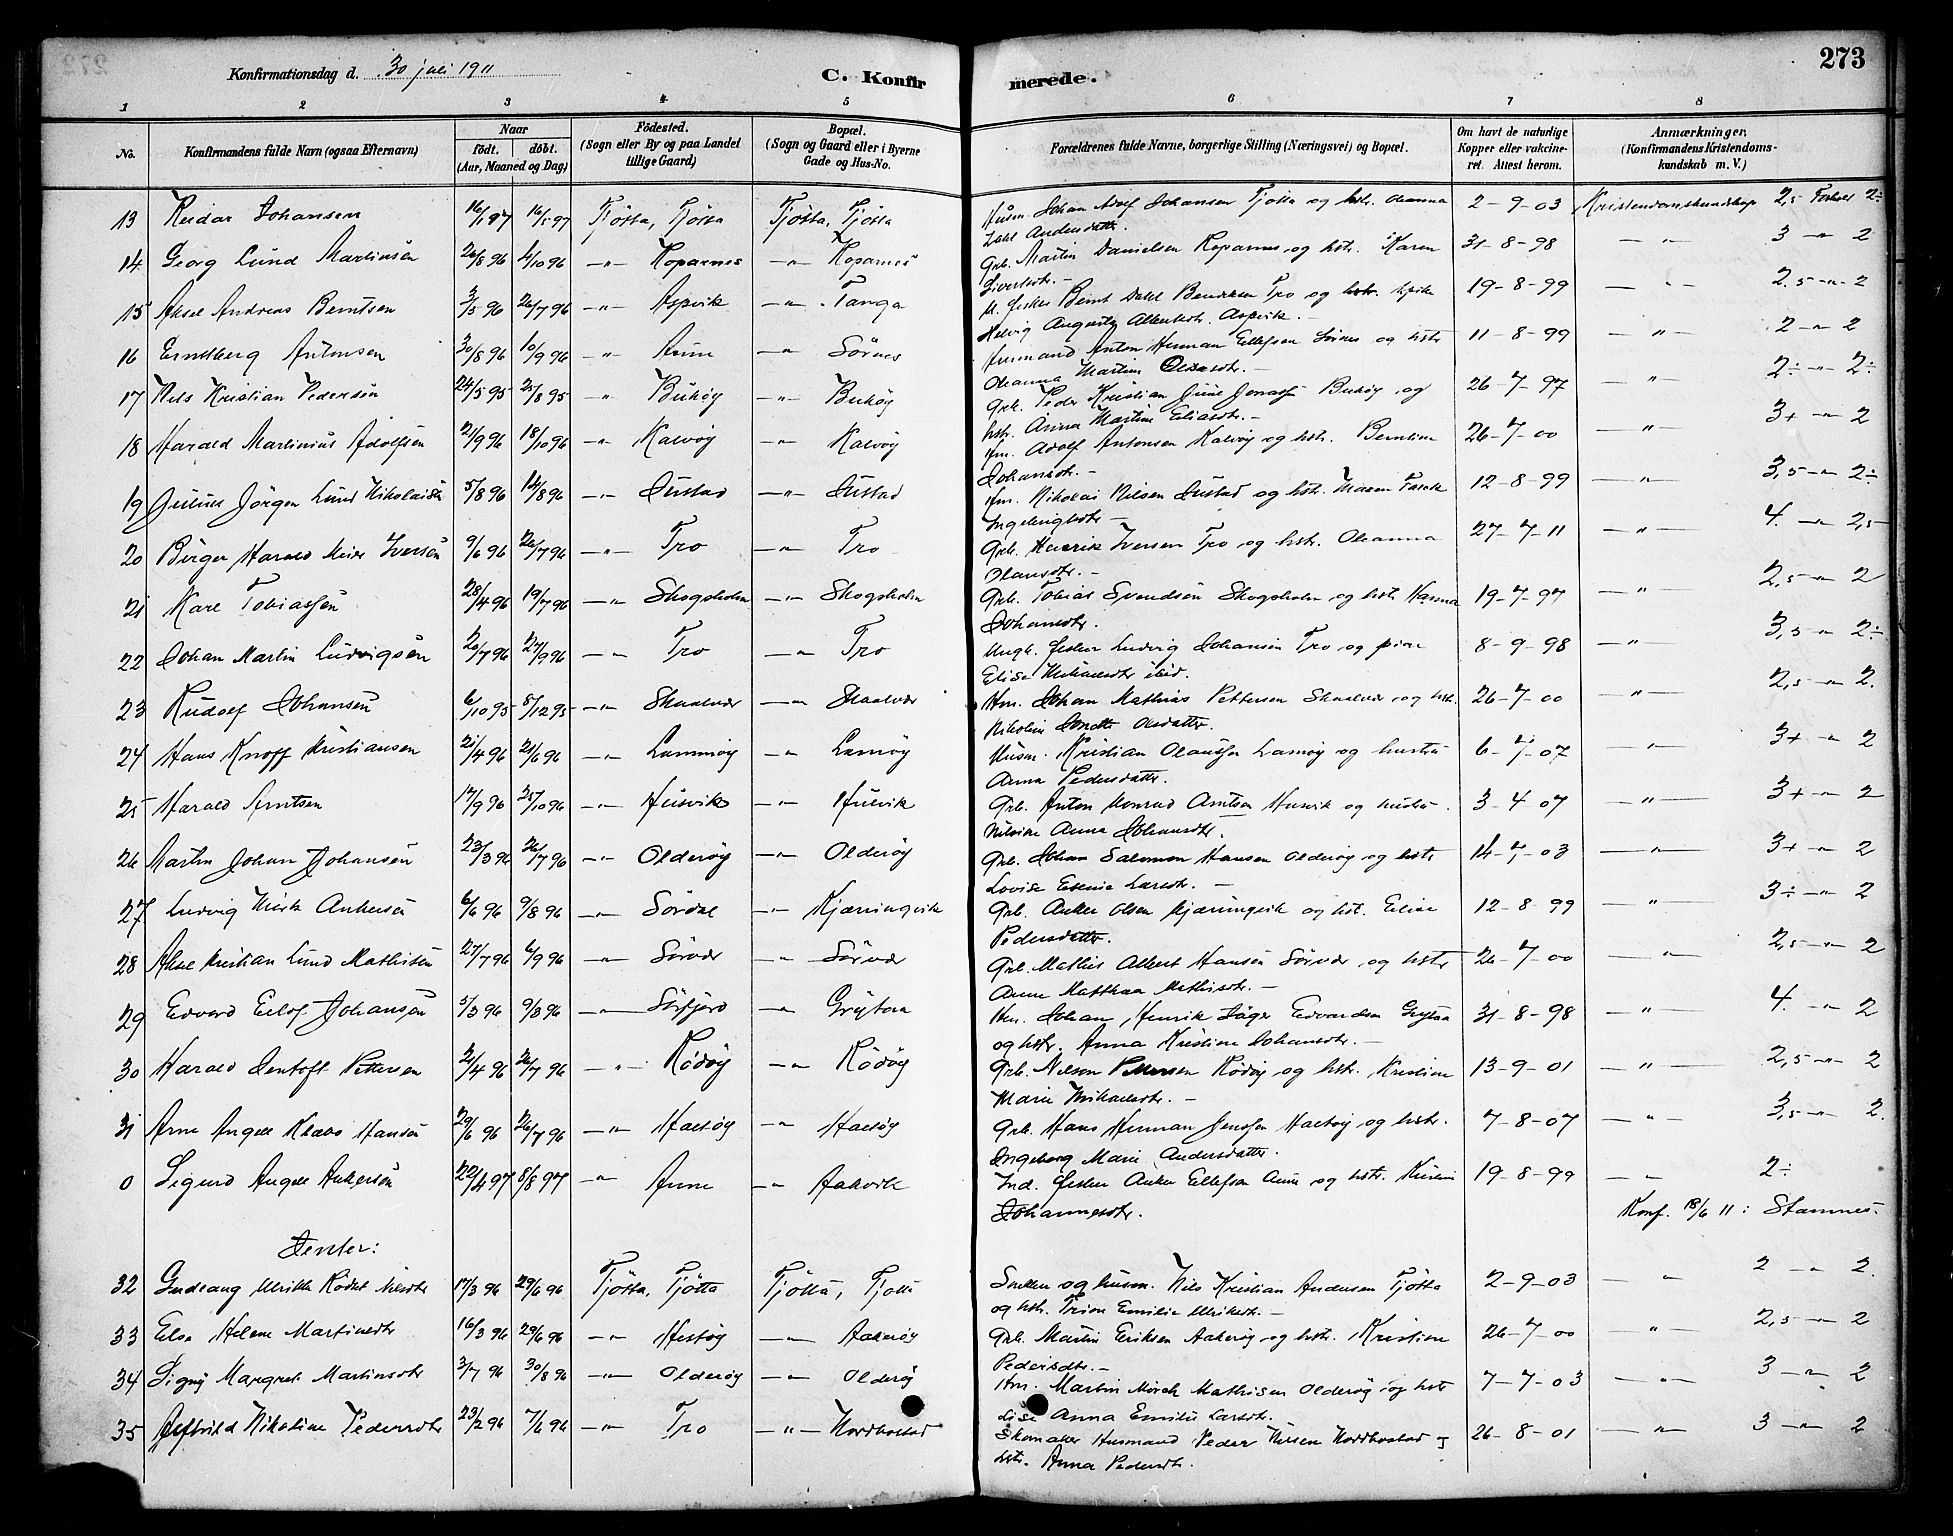 273
Konfirmationsdag d. 30 juli 1911
C. Konfirmerede.
1 2 3 4 5 6 7 8
No.
Konfirmandens fulde Navn (ogsaa Efternavn)
Naar
födt. döbt.
(Aar, Maaned og Dag)
Födested.
(Sogn eller By og paa Landet
tillige Gaard)
Bopæl.
(Sogn og Gaard eller i Byerne
Gade og Hus-No.
Forældrenes fulde Navne, borgerlige Stilling (Næringsvei) og Bopæl.
Om havt de naturlige
Kopper eller vakcine-
ret. Attest herom.
Anmærkninger.
(Konfirmandens Kristendoms-
kundskab m. V.)
13 Reidar Johansen 16/1 97 16/5 97 Tjötta, Tjötta Tjötta, Tjötta Husm. Johan Adolf Johansen Tjötta og hstr. Oleanna 2-9-03 Kristendomskundskap 2,5 Forhold 2÷
Andersdattr.
14 Georg Lund Martinsen 26/8 96 4/10 96 —"— Koparnes —"— Koparnes Grb. Martin Danielsen Koparnes og hstr. Karen 31-8-98 —"— 3 —"— 2
Sivertsdtr.
15 Aksel Andreas Berntsen 3/5 96 26/7 96 —"— Aspvik —"— Tanga fisker Bernt Dahl Bendiksen Tro og 19-8-99 —"— 2.5 —"— 2
Aspvik. —
16 Erndberg Antonsen 30/8 96 10/9 96 —"— Aune —"— Sörnes Husmand Anton Herman Ellefsen Sörnes og hstr 11-8-99 —"— 2 —"— 2
Oleanna Martine Olsesdtr. —
17 Nils Kristian Pedersen 24/5 95 25/8 95 —"— Buköy —"— Buköy Grb. Peder Kristian June Jonassen Buköy og 26-7-97 —"— 2÷ —"— 2÷
hstr. Anna Martine Eliasdtr. —
18 Harald Martinius Adolfsen 21/9 96 18/10 96 —"— Kalvöy —"— Kalvöy Hm. Adolf Antonsen Kalvöy og hstr. Berntine 26-7-00 —"— 3+ —"— 2
Johansdtr. —
19 Julius Jörgen Lund Nikolaisen 5/8 96 14/8 96 —"— Oustad —"— Oustad Hm. Nikolai Nilsen Oustad og hstr. Maren 12-8-99 —"— 3,5 —"— 2÷
Ingebrigtsdtr —
20 Birger Harald Meier Iversen 9/6 96 26/7 96 —"— Tro —"— Tro Grb. Henrik Iversen Tro og hstr. Oleanna 27-7-11 —"— 4. —"— 2,5
Olausdtr. —
21 Karl Tobiassen 28/4 96 19/7 96 —"— Skogsholm —"— Skogsholm Grb. Tobias Svendsen Skogsholm og hstr Hanna 19-7-97 —"— 2,5 —"— 2
Johansdtr.
22 Johan Martin Ludvigsen 20/7 96 27/9 96 —"— Tro —"— Tro Ungk. fisker Ludvig Johansen Tro og pike 8-9-98 —"— 3,5 —"— 2÷
Elise Mikalsdtr ibid.
23 Rudolf Johansen 6/10 95 8/12 95 —"— Skaalvær —"— Skaalvær Hm. Johan Mathias Pettersen Skaalvær og hstr. 26-7-00 —"— 2,5 —"— 2.
Nikoline Olesdatter.
24 Hans Knoff Kristiansen 21/4 96 21/6 96 —"— Lammöy —"— Lamöy Husm. Kristian Olaussen Lamöy og hustru 6-7-07 —"— 3+ —"— 2
Anna Pedersdatter.
25 Harald Arntsen 17/9 96 25/10 96 —"— Husvik —"— Husvik Grb. Anton Konrad Arntsen Husvik og hustru 3-4-07 —"— 3+ —"— 2
Anna Johansdtr.
26 Martin Johan Johansen 23/3 96 26/7 96 —"— Olderöy —"— Olderöy Grb. Johan Salomon Hansen Olderöy og hstr 14-7-03 —"— 3+ —"— 2
Lovise Larsdtr. —
27 Ludvig Ankersen 6/6 96 9/8 96 —"— Sördal —"— Kjærringvik Grb. Anker Olsen Kjærringvik og hst. Eline 12-8-99 —"— 3÷ —"— 2
Pedersdatter.
28 Aksel Kristian Lund Mathisen 27/7 96 6/9 96 —"— Sörvær —"— Sörvær Grb. Mathis Albert Hansen Sörvær, og hstr 26-7-00 —"— 2,5 —"— 2
Anne Matthea Mathisdtr. —
29 Edvard Johansen 5/3 96 9/3 96 —"— Sörfjord —"— Grytaa Hm. Johan Henrik Jäger Edvardsen Grytaa 31-8-98 —"— 4. —"— 2
og hstr. Anna Kristine Johansdtr. —
30 Harald Dentoft Pettersen 21/4 96 26/7 96 —"— Rödöy —"— Rödöy Grb. Nelson Pettersen Rödöy og hstr. Kristine 13-9-01 —"— 2,5 —"— 2
Marie Mikalsdtr. —
31 Arne Angell Hansen 29/6 96 26/7 96 —"— Hæstöy —"— Hæstöy Grb. Hans Herman Jenssen Hæstöy og hstr. 7-8-07 —"— 3,5 —"— 2.
Ingeborg Marie Andersdatter.
0 Sigurd Angell Ankersen 22/4 97 8/8 97 —"— Aune —"— Aakvik Ind. fisker Anker Ellefsen Aune og hstr. 19-8-99 —"— 2÷
Johannesdtr. Konf. 18/6 11: Stamnes.
Jenter:
32 Gudlaug Ulrikke Rödal Nilsdtr 17/3 96 29/6 96 Tjötta, Tjötta Tjötta, Tjötta Snekker og husm. Nils Kristian Andersen Tjötta 2-9-03 —"— 2 —"— 2.
og hstr. Trine Emilie Ulriksdtr. —
33 Elsa Helene Martinsdtr 16/3 96 29/6 96 —"— Hestöy —"— Aakeröy Grb. Martin Eriksen Aakeröy og hstr. Kristine 26-7-00 —"— 2,5 —"— 2
Pedersdtr. —
34 Signy Margret Martinsdtr 3/7 96 30/8 96 —"— Olderöy —"— Olderöy Hm. Martin Mörch Mathisen Olderöy og hstr 7-7-03 —"— 3 —"— 2
Lise Anna Emilie Larsdtr.
35 Nikoline Pedersdtr 23/2 96 7/6 96 —"— Tro —"— Nordbostad Skomaker Husmand Peder Nilsen Nordbostad og 26-8-01 —"— 3 —"— 2
hstr. Anna Pedersdtr.